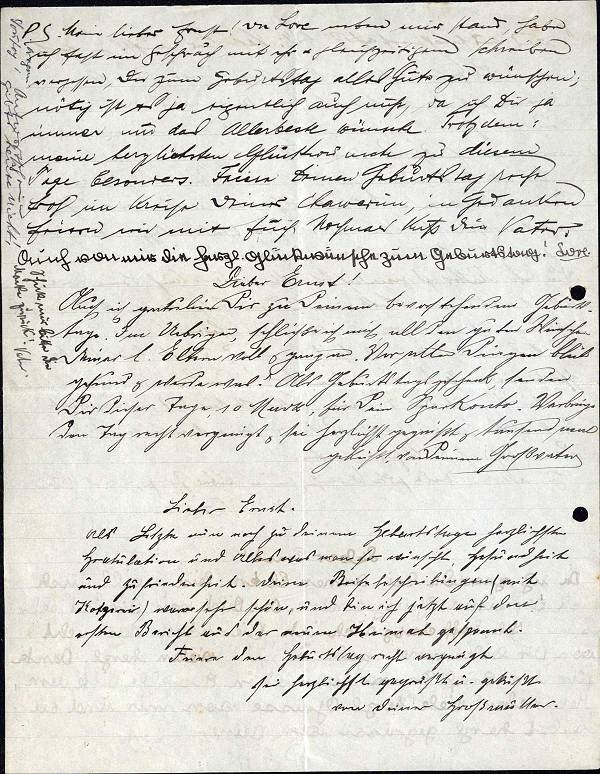 P.S. Mein lieber Ernst! Da Lore neben mir stand, habe
ich fast im Gespräch mit ihr u. gleichzeitigem Schreiben
vergessen, Dir zum Geburtstag alles Gute zu wünschen;
nötig ist es ja eigentlich auch nicht, da ich Dir ja
immer nur das Allerbeste wünsche. Trotzdem:
meine herzlichsten Glückwünsche zu diesem
Tage besonders. Feiere Deinen Geburtstag recht
froh im Kreise Deiner Chawerim, in Gedanken
feiern wir mit Euch. Nochmals Kuß Dein Vater.
Auch von mir die herzl. Glückwünsche zum Geburtstag! Lore.
Lieber Ernst!
Auch ich gratuliere Dir zu Deinem bevorstehenden Geburts-
tage. Im Uebrigen, schließe ich mich all den guten Wünschen
Deiner l. Eltern voll u. ganz an. Vor allen Dingen bleib
gesund u. Als Geburtstagsgeschenk, sende
Dir dieser Tage 10 Mark, für Dein Sparkonto. Verbringe
den Tag recht vergnügt, sei herzlichst gegrüßt u. tausend mal
geküßt, von Deinem Großvater
Lieber Ernst.
Als Letzte nun noch zu deinem Geburtstage herzlichste
Gratulation und Alles was man so wünscht Gesundheit
und Zufriedenheit. Deine Reisebeschreibungen (mit
) war sehr schön, und bin ich jetzt auf den
ersten Bericht aus der neuen Heimat gespannt.
Feiere den Geburtstag recht vergnügt
sei herzlichst gegrüßt u. geküßt
von deiner Großmutter.